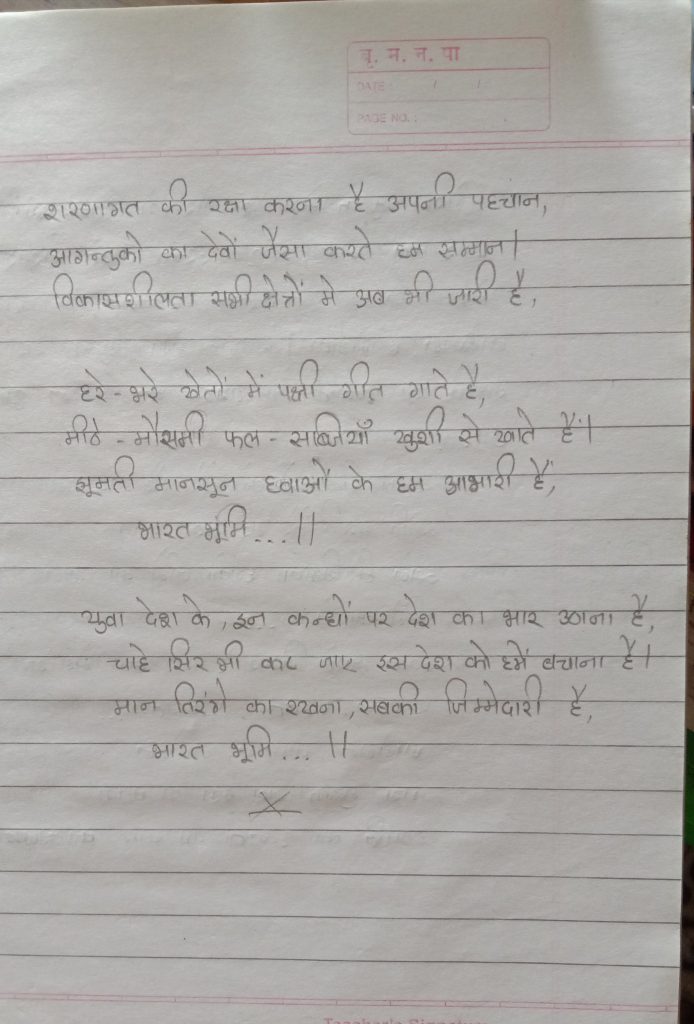 बृ. म. न. पा
DATE : / /
PAGE NO. :
शरणागत की रक्षा करना है अपनी पहचान,
आगन्तुको का देवों जैसा करते हम सम्मान।
विकासशीलता सभी क्षेत्रों मे अब भी जारी है,
हरे-भरे खेतों में पक्षी गीत गाते है,
मीठे-मौसमी फल-सब्जियाँ खुशी से खाते हैं।
झूमती मानसून हवाओं के हम आभारी हैं,
भारत भूमि...।।
युवा देश के, इन कन्धों पर देश का भार उठाना है,
चाहे सिर भी कट जाए इस देश को हमें बचाना है।
मान तिरंगे का रखना, सबकी जिम्मेदारी है,
भारत भूमि... ।।
Teacher's Signature